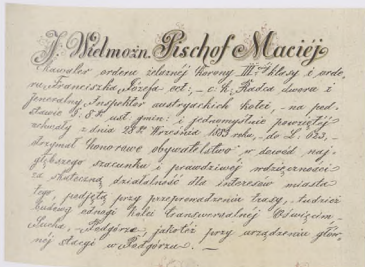 J. Wielmożn. Pischof Maciéj
Kawaler orderu żelaznéj Korony III. klasy i orde-
ru Franciszka Józefa etc., c. k. Radca dworu i
Jeneralny Inspektor austryackich kolei, na pod-
stawie §. 8st ust. gmin. i jednomyślnie powziętéj
uchwały z dnia 28go Września 1883 roku, do L. 623.
otrzymał honorowe obywatelstwo w dowód naj-
głębszego szacunku i prawdziwéj wdzięczności
za skuteczną działalność dla interesów miasta
tego podjętą przy przeprowadzeniu trasy, tudzież
budowy odnogi kolei transwersalnéj Oświęcim-
Sucha, Podgórze, jakotéż przy urządzeniu głów-
néj stacyi w Podgórzu. —